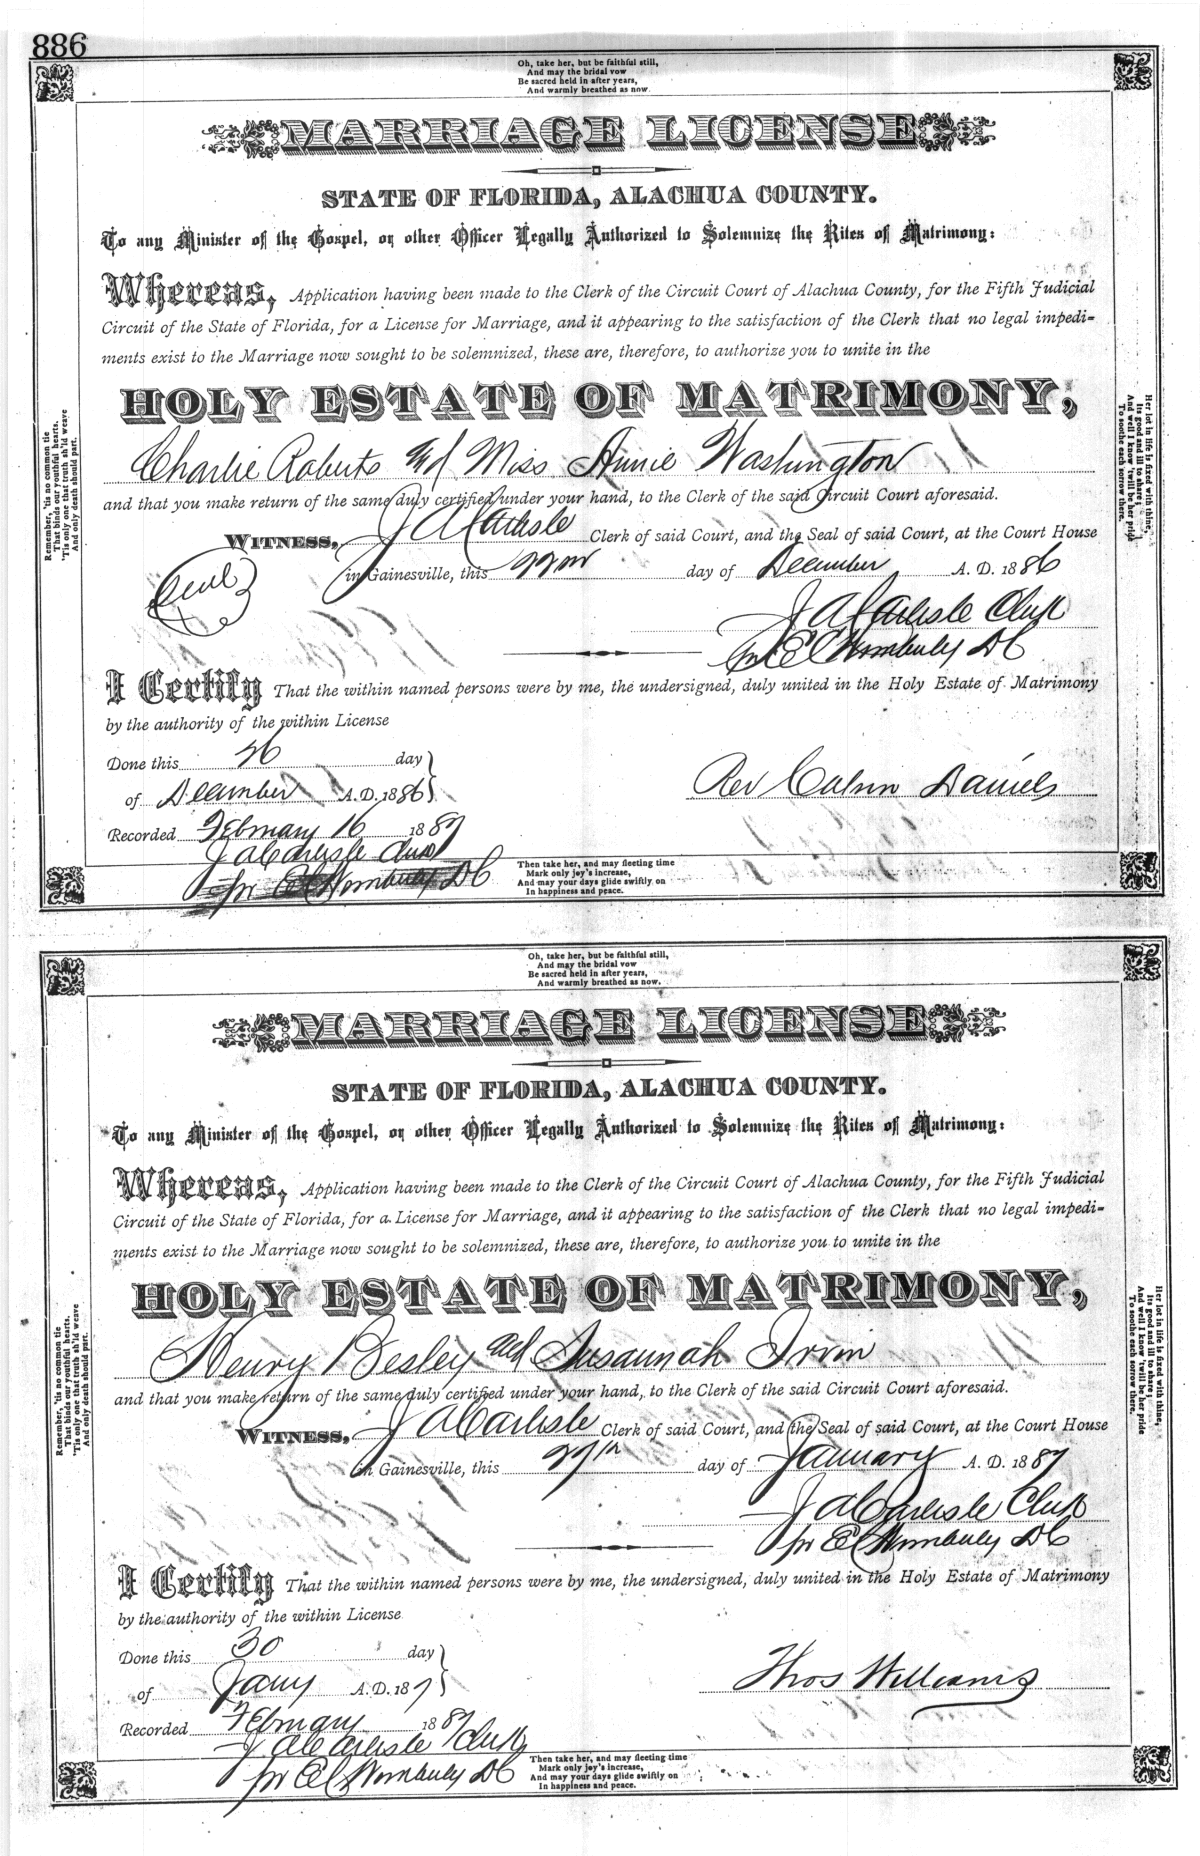 886
Oh, take her, but be faithful still,
And may the bridal vow
Be sacred held in after years,
And warmly breathed as now.
MARRIAGE LICENSE
STATE OF FLORIDA, ALACHUA COUNTY.
To any Minister of the Gospel, or other Officer Legally Authorized to Solemnize the Rites of Matrimony:
Whereas, Application having been made to the Clerk of the Circuit Court of Alachua County, for the Fifth Judicial
Circuit of the State of Florida, for a License for Marriage, and it appearing to the satisfaction of the Clerk that no legal impedi-
ments exist to the Marriage now sought to be solemnized, these are, therefore, to authorize you to unite in the
HOLY ESTATE OF MATRIMONY,
Charlie Roberts and Miss Annie Washington
and that you make return of the same duly certified under your hand, to the Clerk of the said Circuit Court aforesaid.
WITNESS, J A Carlisle Clerk of said Court, and the Seal of said Court, at the Court House
in Gainesville, this 22nd day of December A. D. 1886
Seal
J A Carlisle Clerk
E C Wimberly DC
I Certify That the within named persons were by me, the undersigned, duly united in the Holy Estate of Matrimony
by the authority of the within License
Done this 26 day
of December A.D. 1886
Rev Calvin Daniels
Recorded February 16 1887
J A Carlisle Clerk
pr E C Wimberly DC
Then take her, and may fleeting time
Mark only joy's increase,
And may your days glide swiftly on
In happiness and peace.
Remember, 'tis no common tie
That binds our youthful hearts.
'Tis only one that truth sh'ld weave
And only death should part.
Her lot in life is fixed with thine,
Its good and ill to share;
And well I know 'twill be her pride
To soothe each sorrow there.
Oh, take her, but be faithful still,
And may the bridal vow
Be sacred held in after years,
And warmly breathed as now.
MARRIAGE LICENSE
STATE OF FLORIDA, ALACHUA COUNTY.
To any Minister of the Gospel, or other Officer Legally Authorized to Solemnize the Rites of Matrimony:
Whereas, Application having been made to the Clerk of the Circuit Court of Alachua County, for the Fifth Judicial
Circuit of the State of Florida, for a License for Marriage, and it appearing to the satisfaction of the Clerk that no legal impedi-
ments exist to the Marriage now sought to be solemnized, these are, therefore, to authorize you to unite in the
HOLY ESTATE OF MATRIMONY,
Henry Besley and Susannah Irvin
and that you make return of the same duly certified under your hand, to the Clerk of the said Circuit Court aforesaid.
WITNESS, J A Carlisle Clerk of said Court, and the Seal of said Court, at the Court House
in Gainesville, this 27th day of January A. D. 1887
J A Carlisle Clerk
pr E C Wimberly DC
I Certify That the within named persons were by me, the undersigned, duly united in the Holy Estate of Matrimony
by the authority of the within License
Done this 30 day
of Jany A.D. 187
Thos Williams
Recorded February 1887
J A Carlisle Clerk
pr E C Wimberly DC
Then take her, and may fleeting time
Mark only joy's increase,
And may your days glide swiftly on
In happiness and peace.
Remember, 'tis no common tie
That binds our youthful hearts.
'Tis only one that truth sh'ld weave
And only death should part.
Her lot in life is fixed with thine,
Its good and ill to share;
And well I know 'twill be her pride
To soothe each sorrow there.